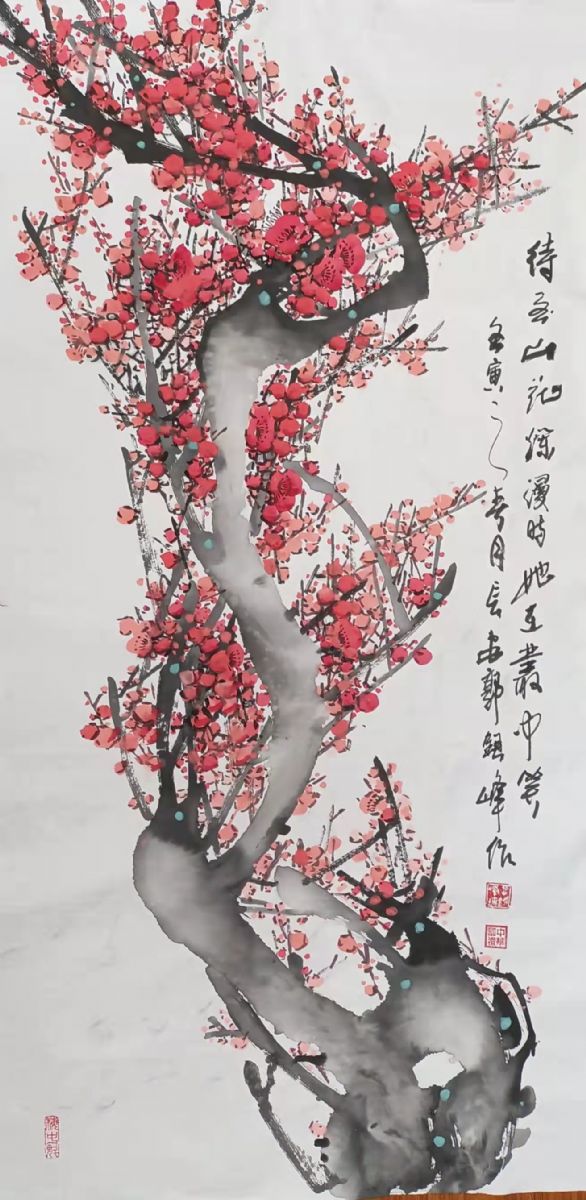 待到山花烂漫时她在叢中笑
壬寅之春月長安郭鎮峰作